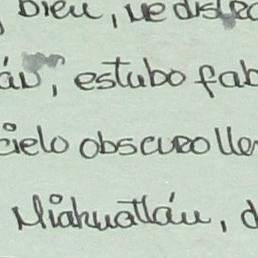 bien, me
estubo fab
cielo obscuro lle
Miahuatlán, d